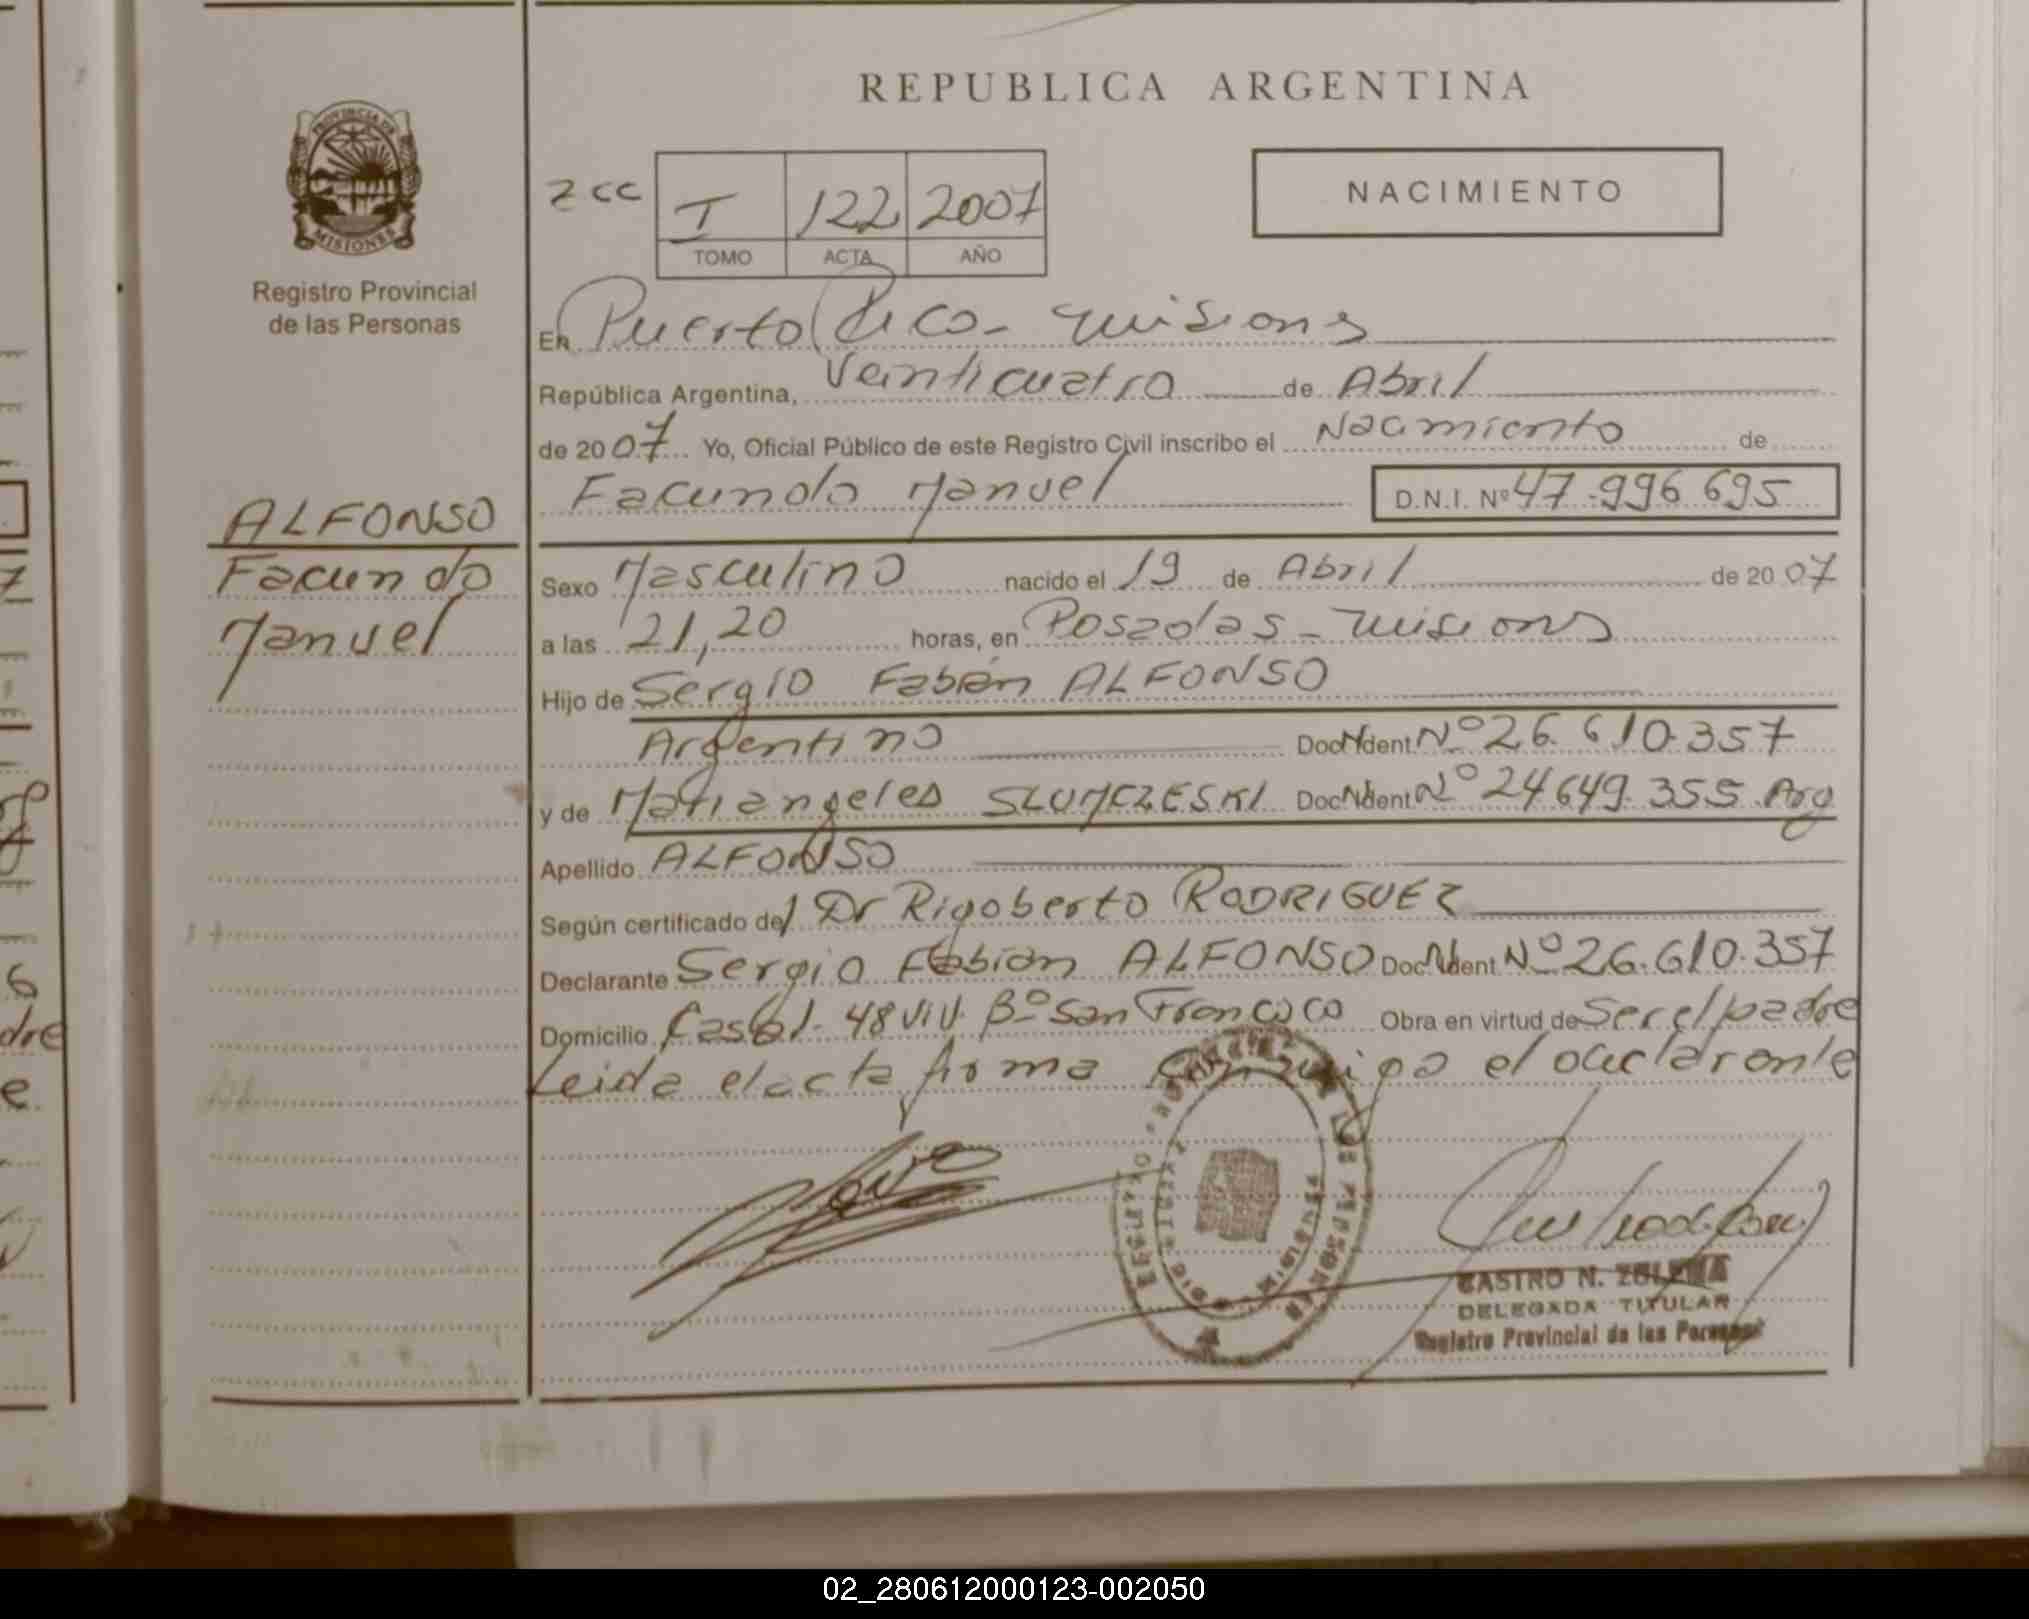 REPUBLICA ARGENTINA
PROVINCIA DE
MISIONES
Registro Provincial
de las Personas
2 CC
I 122 2007
TOMO ACTA AÑO
NACIMIENTO
En Puerto Rico - Misiones
República Argentina, Veinticuatro de Abril
de 2007 Yo, Oficial Público de este Registro Civil inscribo el Nacimiento de
Facundo Manuel D.N.I. Nº 47.996.695
ALFONSO
Facundo
Manuel
Sexo Masculino nacido el 19 de Abril de 2007
a las 21,20 horas, en Posadas - Misiones
Hijo de Sergio Fabián ALFONSO
Argentino Doc. Ident Nº 26.610.357
y de Mariangeles SLUMCZESKI Doc. Ident Nº 24.649.355 Arg
Apellido ALFONSO
Según certificado del Dr Rigoberto RODRIGUEZ
Declarante Sergio Fabián ALFONSO Doc. Ident Nº 26.610.357
Domicilio Casa 1. 48 Viv. Bº San Francisco Obra en virtud de Ser el padre
Leida el acta firma conmigo el declarante
CASTRO N. ZULEMA
DELEGADA TITULAR
Registro Provincial de las Personas
02_280612000123-002050